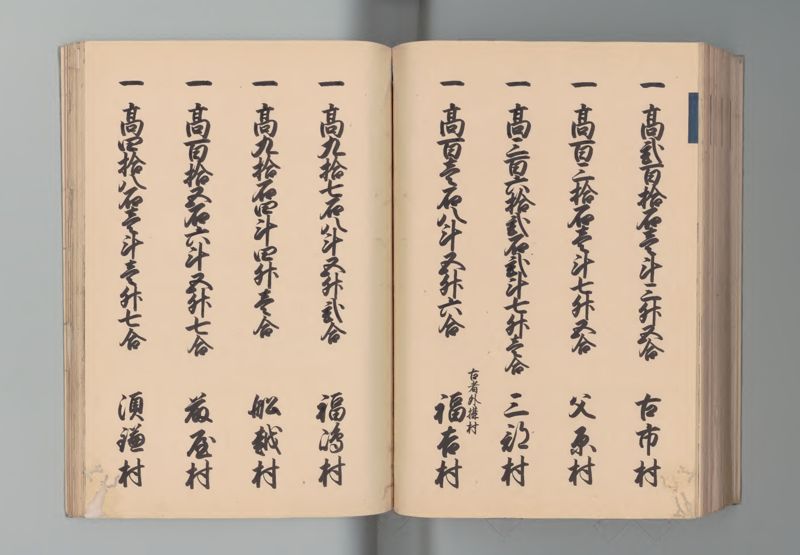 一 高弐百拾石壱斗三升五合 古市村
一 高百三拾石壱斗七升五合 父原村
一 高三百六拾弐石弐斗七升壱合 三部村
一 高百壱石八斗五升六合 福吉村
古者外構村
一 高九拾七石八斗五升弐合 福嶋村
一 高九拾石四斗四升壱合 船越村
一 高百拾五石六斗五升七合 岩屋村
一 高四拾八石壱斗壱升七合 須鎌村